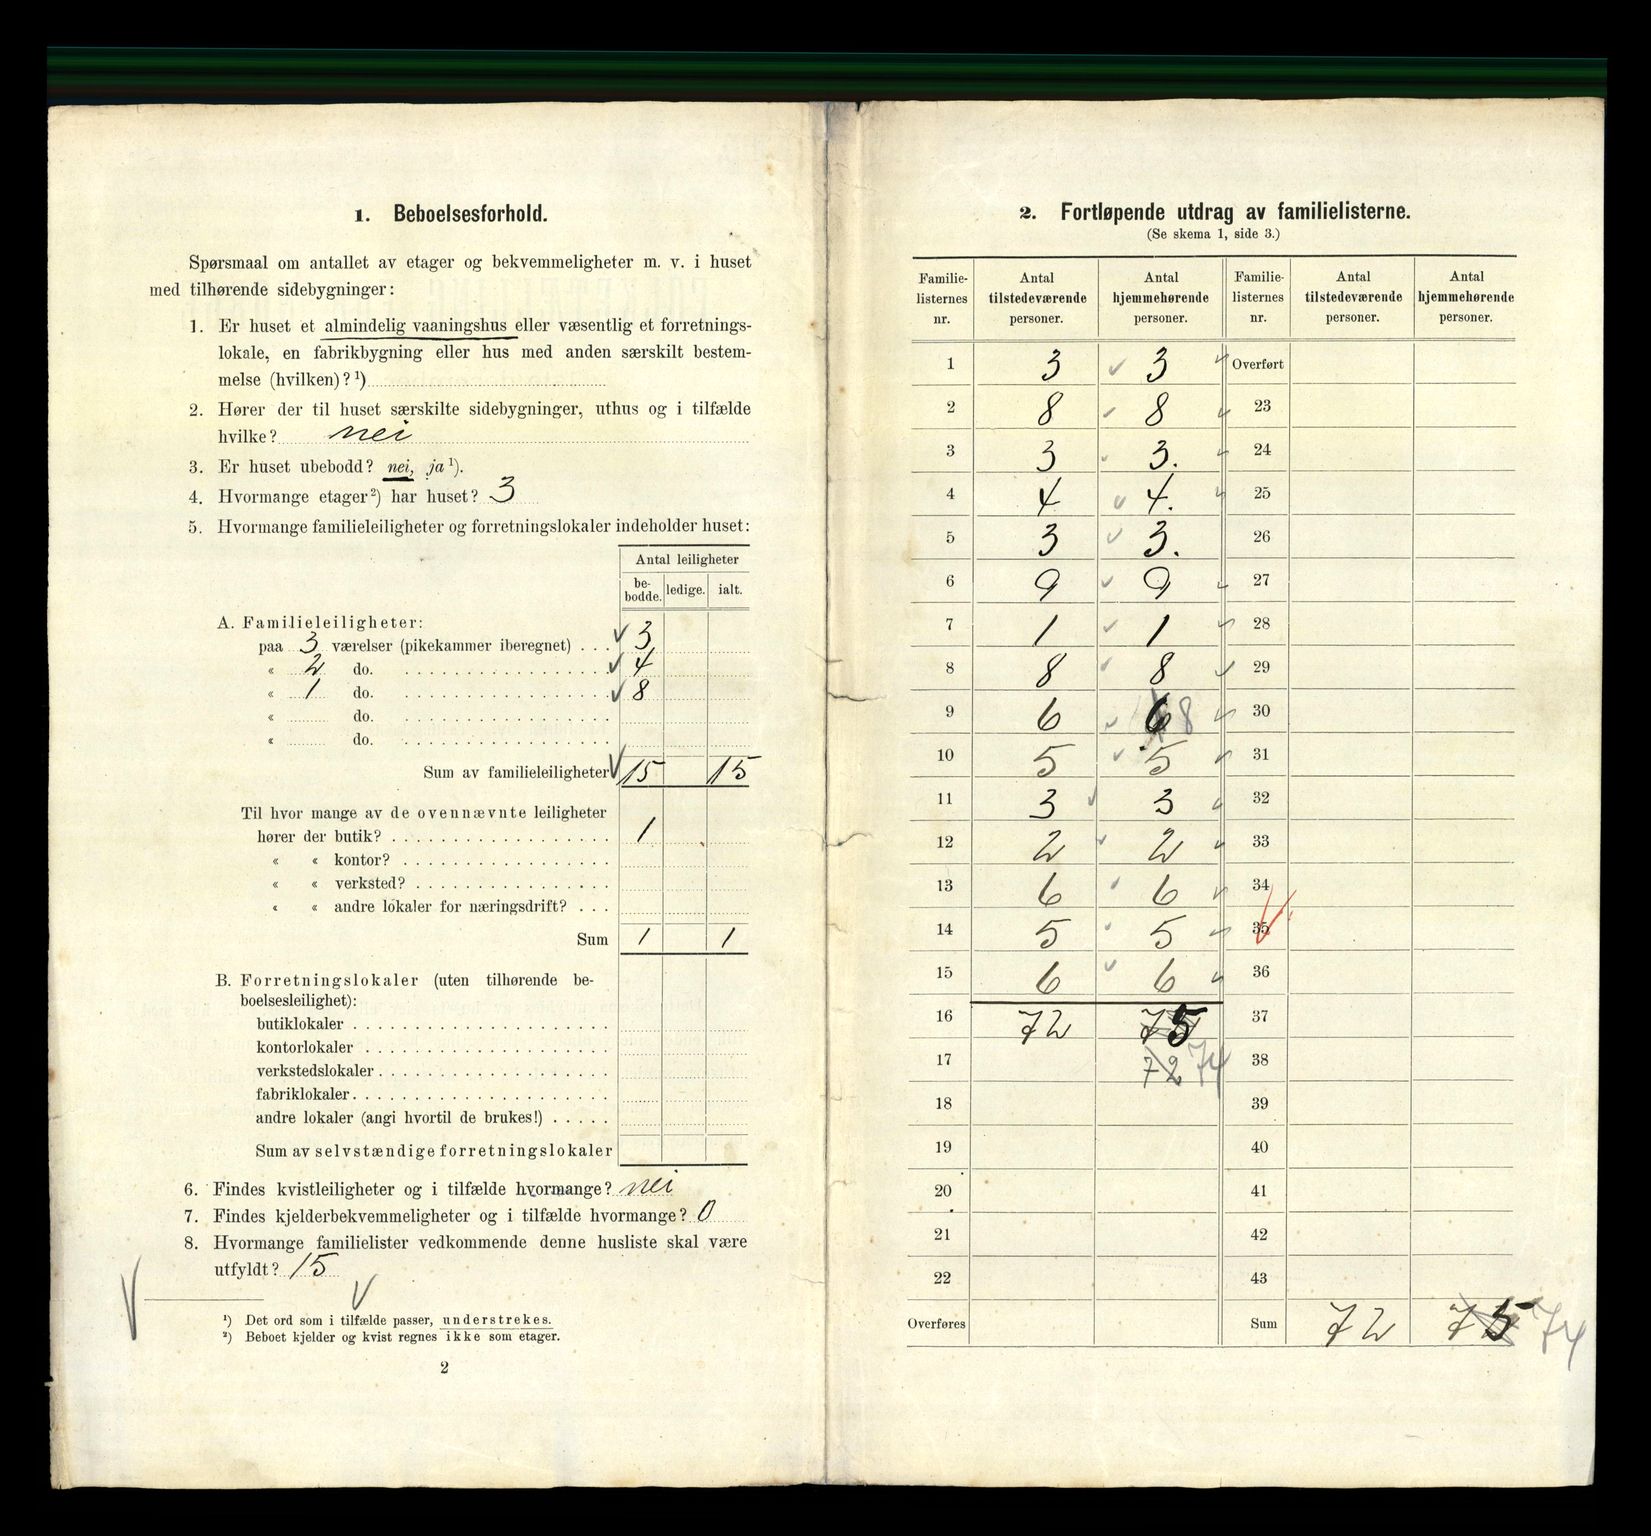 1. Beboelsesforhold.
Spørsmaal om antallet av etager og bekvemmeligheter m. v. i huset
med tilhørende sidebygninger:
1. Er huset et almindelig vaaningshus eller væsentlig et forretnings-
lokale, en fabrikbygning eller hus med anden særskilt bestem-
melse (hvilken)?¹)
2. Hører der til huset særskilte sidebygninger, uthus og i tilfælde
hvilke? nei
3. Er huset ubebodd? nei, ja¹).
4. Hvormange etager²) har huset? 3
5. Hvormange familieleiligheter og forretningslokaler indeholder huset:
Antal leiligheter
be-bodde. ledige. ialt.
A. Familieleiligheter:
paa 3 værelser (pikekammer iberegnet) . . . 3
« 2 do. 4
« 1 do. 8
« do.
« do.
Sum av familieleiligheter 15 15
Til hvor mange av de ovennævnte leiligheter
hører der butik? 1
« « kontor?
« « verksted?
« « andre lokaler for næringsdrift? . . .
Sum 1 1
B. Forretningslokaler (uten tilhørende be-
boelsesleilighet):
butiklokaler
kontorlokaler
verkstedslokaler
fabriklokaler
andre lokaler (angi hvortil de brukes!)
Sum av selvstændige forretningslokaler
6. Findes kvistleiligheter og i tilfælde hvormange? nei
7. Findes kjelderbekvemmeligheter og i tilfælde hvormange? 0
8. Hvormange familielister vedkommende denne husliste skal være
utfyldt? 15
¹) Det ord som i tilfælde passer, understrekes.
²) Beboet kjelder og kvist regnes ikke som etager.
2
2. Fortløpende utdrag av familielisterne.
(Se skema 1, side 3.)
Familie-listernes nr. Antal tilstedeværende personer. Antal hjemmehørende personer. Familie-listernes nr. Antal tilstedeværende personer. Antal hjemmehørende personer.
1 3 3 Overført
2 8 8 23
3 3 3. 24
4 4 4. 25
5 3 3. 26
6 9 9 27
7 1 1 28
8 8 8 29
9 6 6 8 30
10 5 5 31
11 3 3 32
12 2 2 33
13 6 6 34
14 5 5 35
15 6 6 36
16 72 75 37
17 72 74 38
18 39
19 40
20 41
21 42
22 43
Overføres Sum 72 75 74